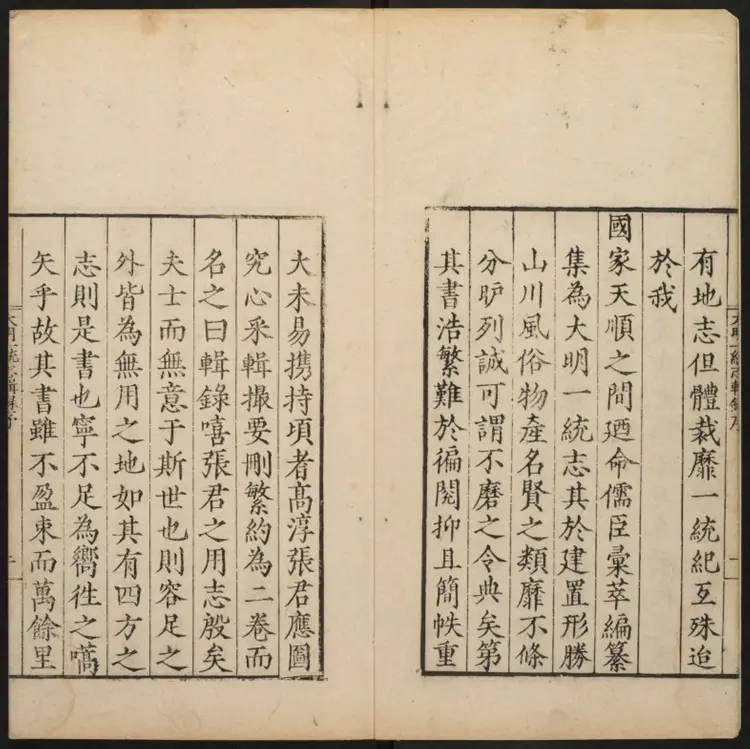 大明一統志輯錄序
有地志但體裁靡一統紀互殊迨
於我
國家天順之間廼命儒臣彙萃編纂
集為大明一統志其於建置形勝
山川風俗物產名賢之類靡不條
分昈列誠可謂不磨之令典矣第
其書浩繁難於徧閱抑且簡帙重
大未易携持頃者髙淳張君應圖
究心釆輯撮要刪繁約為二卷而
名之曰輯錄嘻張君之用志殷矣
夫士而無意于斯世也則容足之
外皆為無用之地如其有四方之
志則是書也寧不足為嚮徃之嚆
矢乎故其書雖不盈束而萬餘里
大明一統志輯錄序